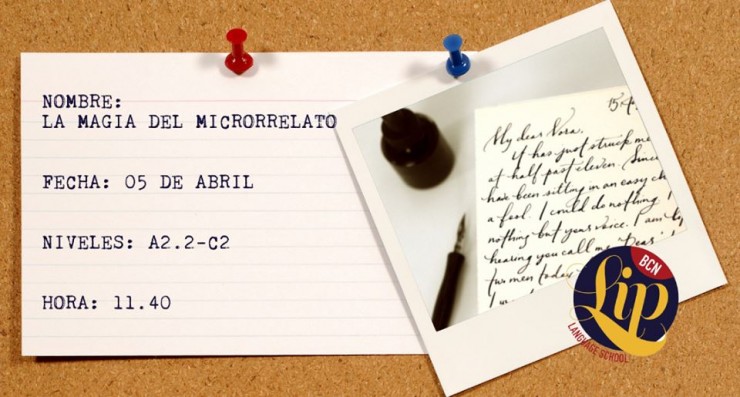 NOMBRE:
LA MAGIA DEL MICRORRELATO
FECHA: 05 DE ABRIL
NIVELES: A2.2-C2
HORA: 11.40
My dear Nora,
it has just struck me
at half past eleven. Since
have been sitting in an easy ch
a fool. I could do nothing. I
nothing but your voice. I am
hearing you call me 'Dear.'
two men today
BCN
Lip
LANGUAGE SCHOOL